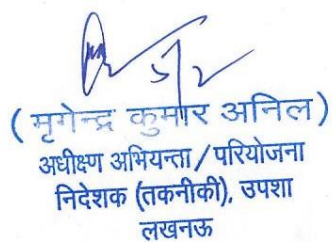 5/2
( मृगेन्द्र कुमार अनिल )
अधीक्षण अभियन्ता / परियोजना
निदेशक (तकनीकी), उपशा
लखनऊ